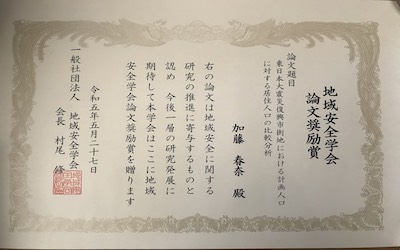 地域安全学会
論文奨励賞
加藤 春奈 殿
論文題目
東日本大震災復興市街地における計画人口
に対する居住人口の比較分析
右の論文は地域安全に関する
研究の推進に寄与するものと
認め 今後一層の研究発展に
期待して本学会はここに地域
安全学会論文奨励賞を贈ります
令和五年五月二十七日
一般社団法人 地域安全学会
会長 村尾 修